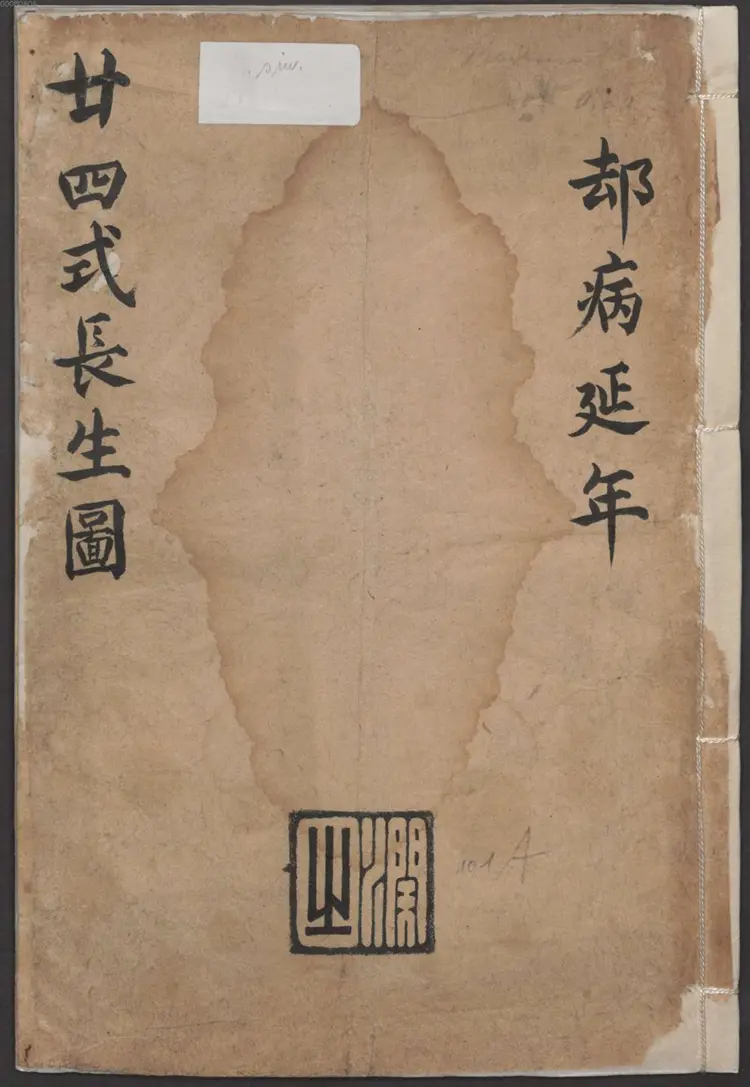 却病延年
廿四式長生圖
sin.
101 A